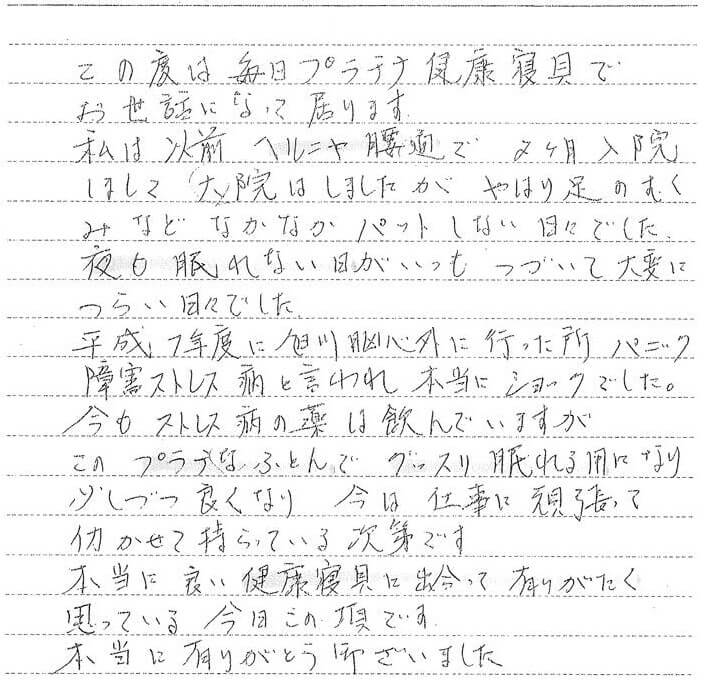 この度は毎日プラチナ健康寝具で
お世話になって居ります.
私は以前ヘルニヤ腰通で 2ヶ月入院
しまして 院はしましたが やはり足のむく
みなど なかなか パットしない日々でした.
夜も眠れない日がいつもつづいて大変に
つらい日々でした.
平成17年度に旭川脳心外に行った所 パニック
障害ストレス病と言われ 本当にショックでした。
今もストレス病の薬は飲んでいますが
このプラチナふとんで グッスリ眠れる用になり
少しづつ良くなり 今は仕事に頑張って
かせて持らっている次第です
本当に良い健康寝具に出合って有りがたく
思っている今日この頃です.
本当に有りがとう御ざいました